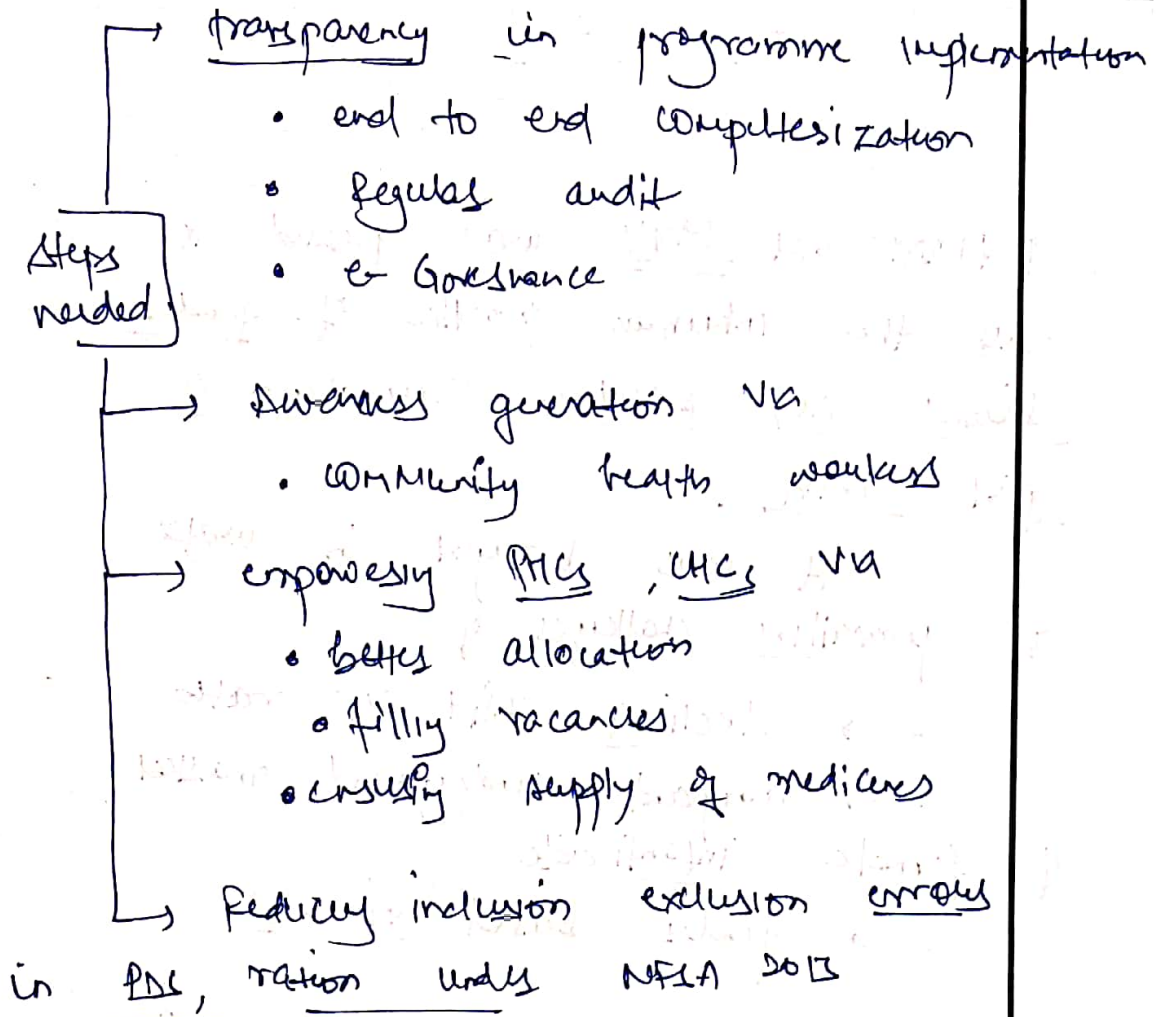 transparency in programme implementation
• end to end computerization
• Regular audit
• e Governance
Steps
needed
Awareness generation via
• community health workers
empowering PHCs, CHCs via
• better allocation
• filling vacancies
• ensuring supply of medicines
Reducing inclusion exclusion errors
in PDS, ration under NFSA 2013